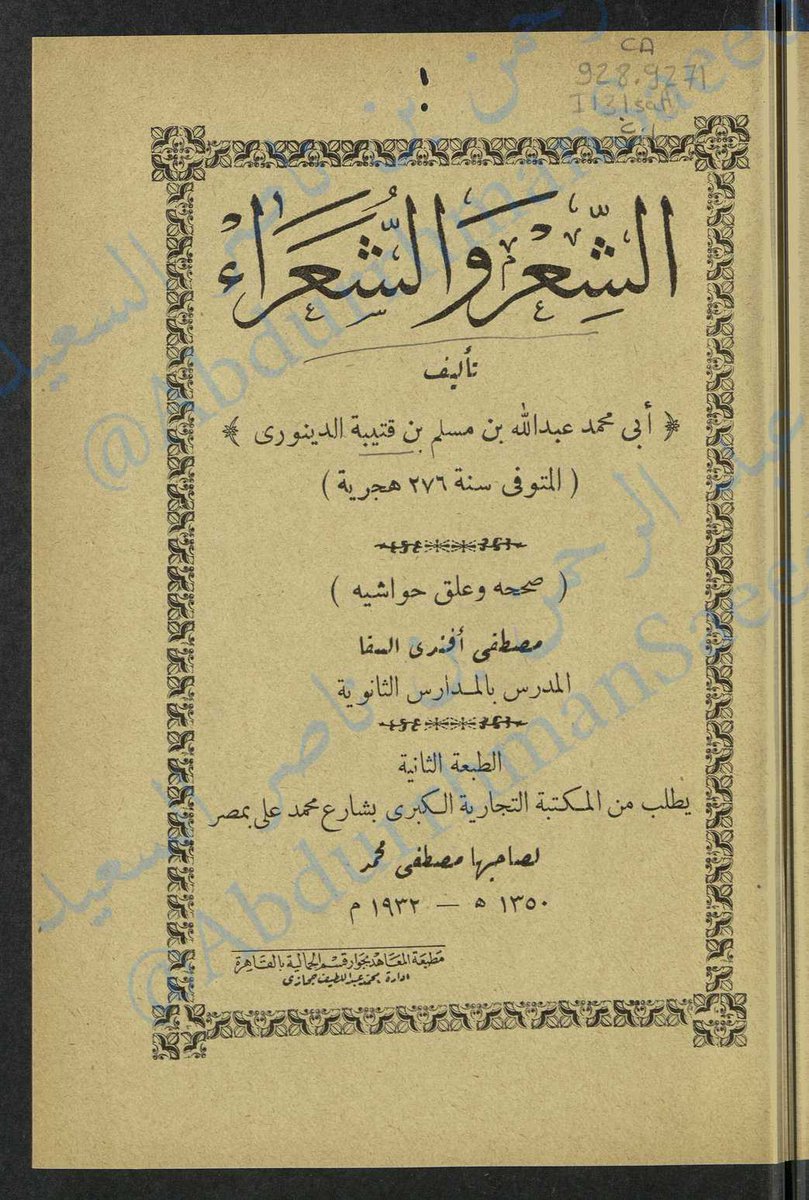 CA
928.9271
I131saA
الشِّعْرُ وَالشُّعَرَاءُ
تأليف
﴿ أبى محمد عبدالله بن مسلم بن قتيبة الدينورى ﴾
( المتوفى سنة ٢٧٦ هجرية )
( صححه وعلق حواشيه )
مصطفى أفندى السقا
المدرس بالمدارس الثانوية
الطبعة الثانية
يطلب من المكتبة التجارية الكبرى بشارع محمد على بمصر
لصاحبها مصطفى محمد
١٣٥٠ ه — ١٩٣٢ م
مطبعة المعاهد بجوار قسم الجمالية بالقاهرة
ادارة محمد عبد اللطيف حجازى
عبد الرحمن بن ناصر السعيد
@AbdurrhmanSaeed